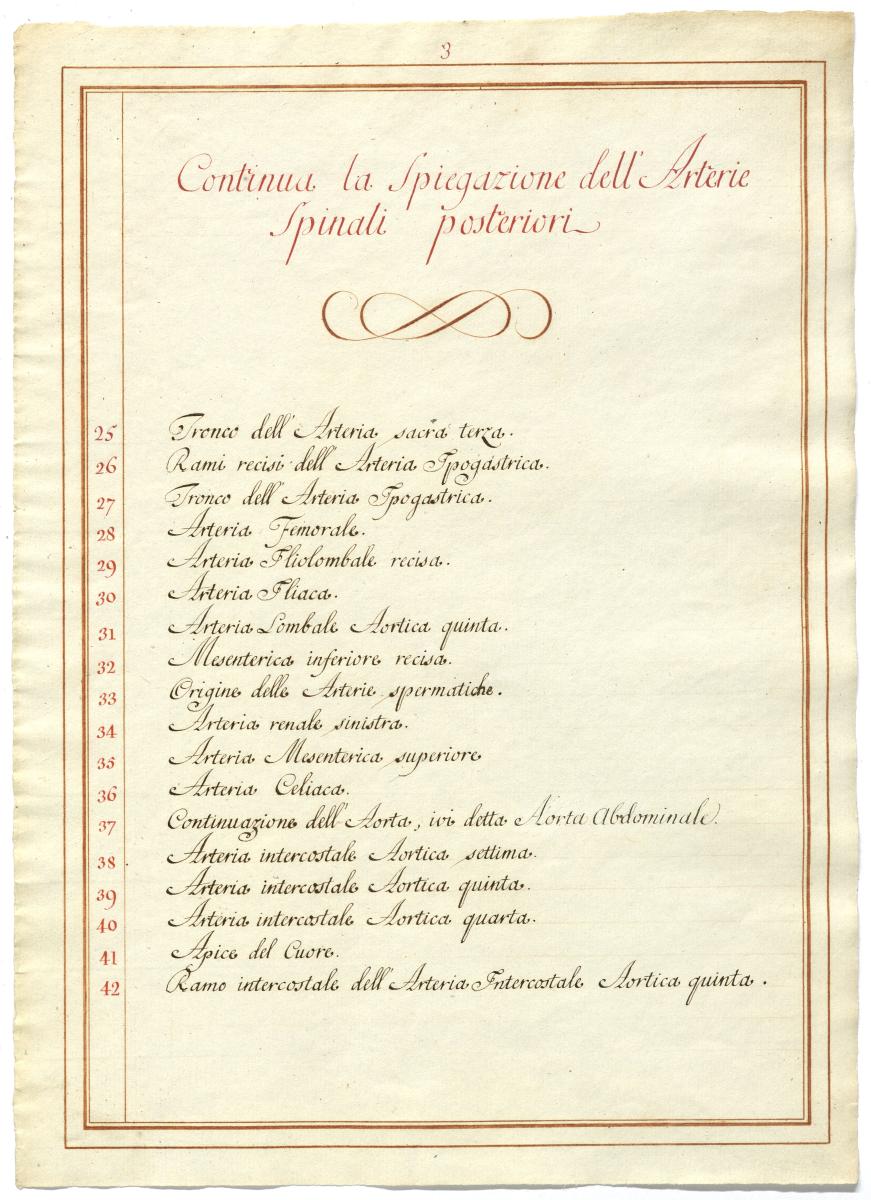 3
Continua la Spiegazione dell'Arterie
Spinali posteriori
25 Tronco dell'Arteria sacra terza.
26 Rami recisi dell'Arteria Ipogastrica.
27 Tronco dell'Arteria Ipogastrica.
28 Arteria Femorale.
29 Arteria Iliolombale recisa.
30 Arteria Iliaca.
31 Arteria Lombale Aortica quinta.
32 Mesenterica inferiore recisa.
33 Origine delle Arterie spermatiche.
34 Arteria renale sinistra.
35 Arteria Mesenterica superiore
36 Arteria Celiaca.
37 Continuazione dell'Aorta, ivi detta Aorta Abdominale.
38 Arteria intercostale Aortica settima.
39 Arteria intercostale Aortica quinta.
40 Arteria intercostale Aortica quarta.
41 Apice del Cuore.
42 Ramo intercostale dell'Arteria Intercostale Aortica quinta.